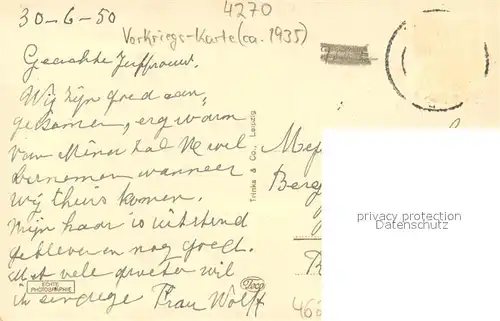 30-6-50
4270
Vorkriegs-Karte (ca. 1935)
Geachte Juffrouw.
Wij zijn goed aan,
gekomen, erg warm
van Miner zal U wel
vernemen wanneer
wij thuis komen.
Mijn haar is uitstend
gebleven en nog goed.
Met vele groeten wil
ik eindige Frau Wolff
ECHTE PHOTOGRAPHIE
Trinks & Co., Leipzig
Trico
Mej
Berg
privacy protection
Datenschutz